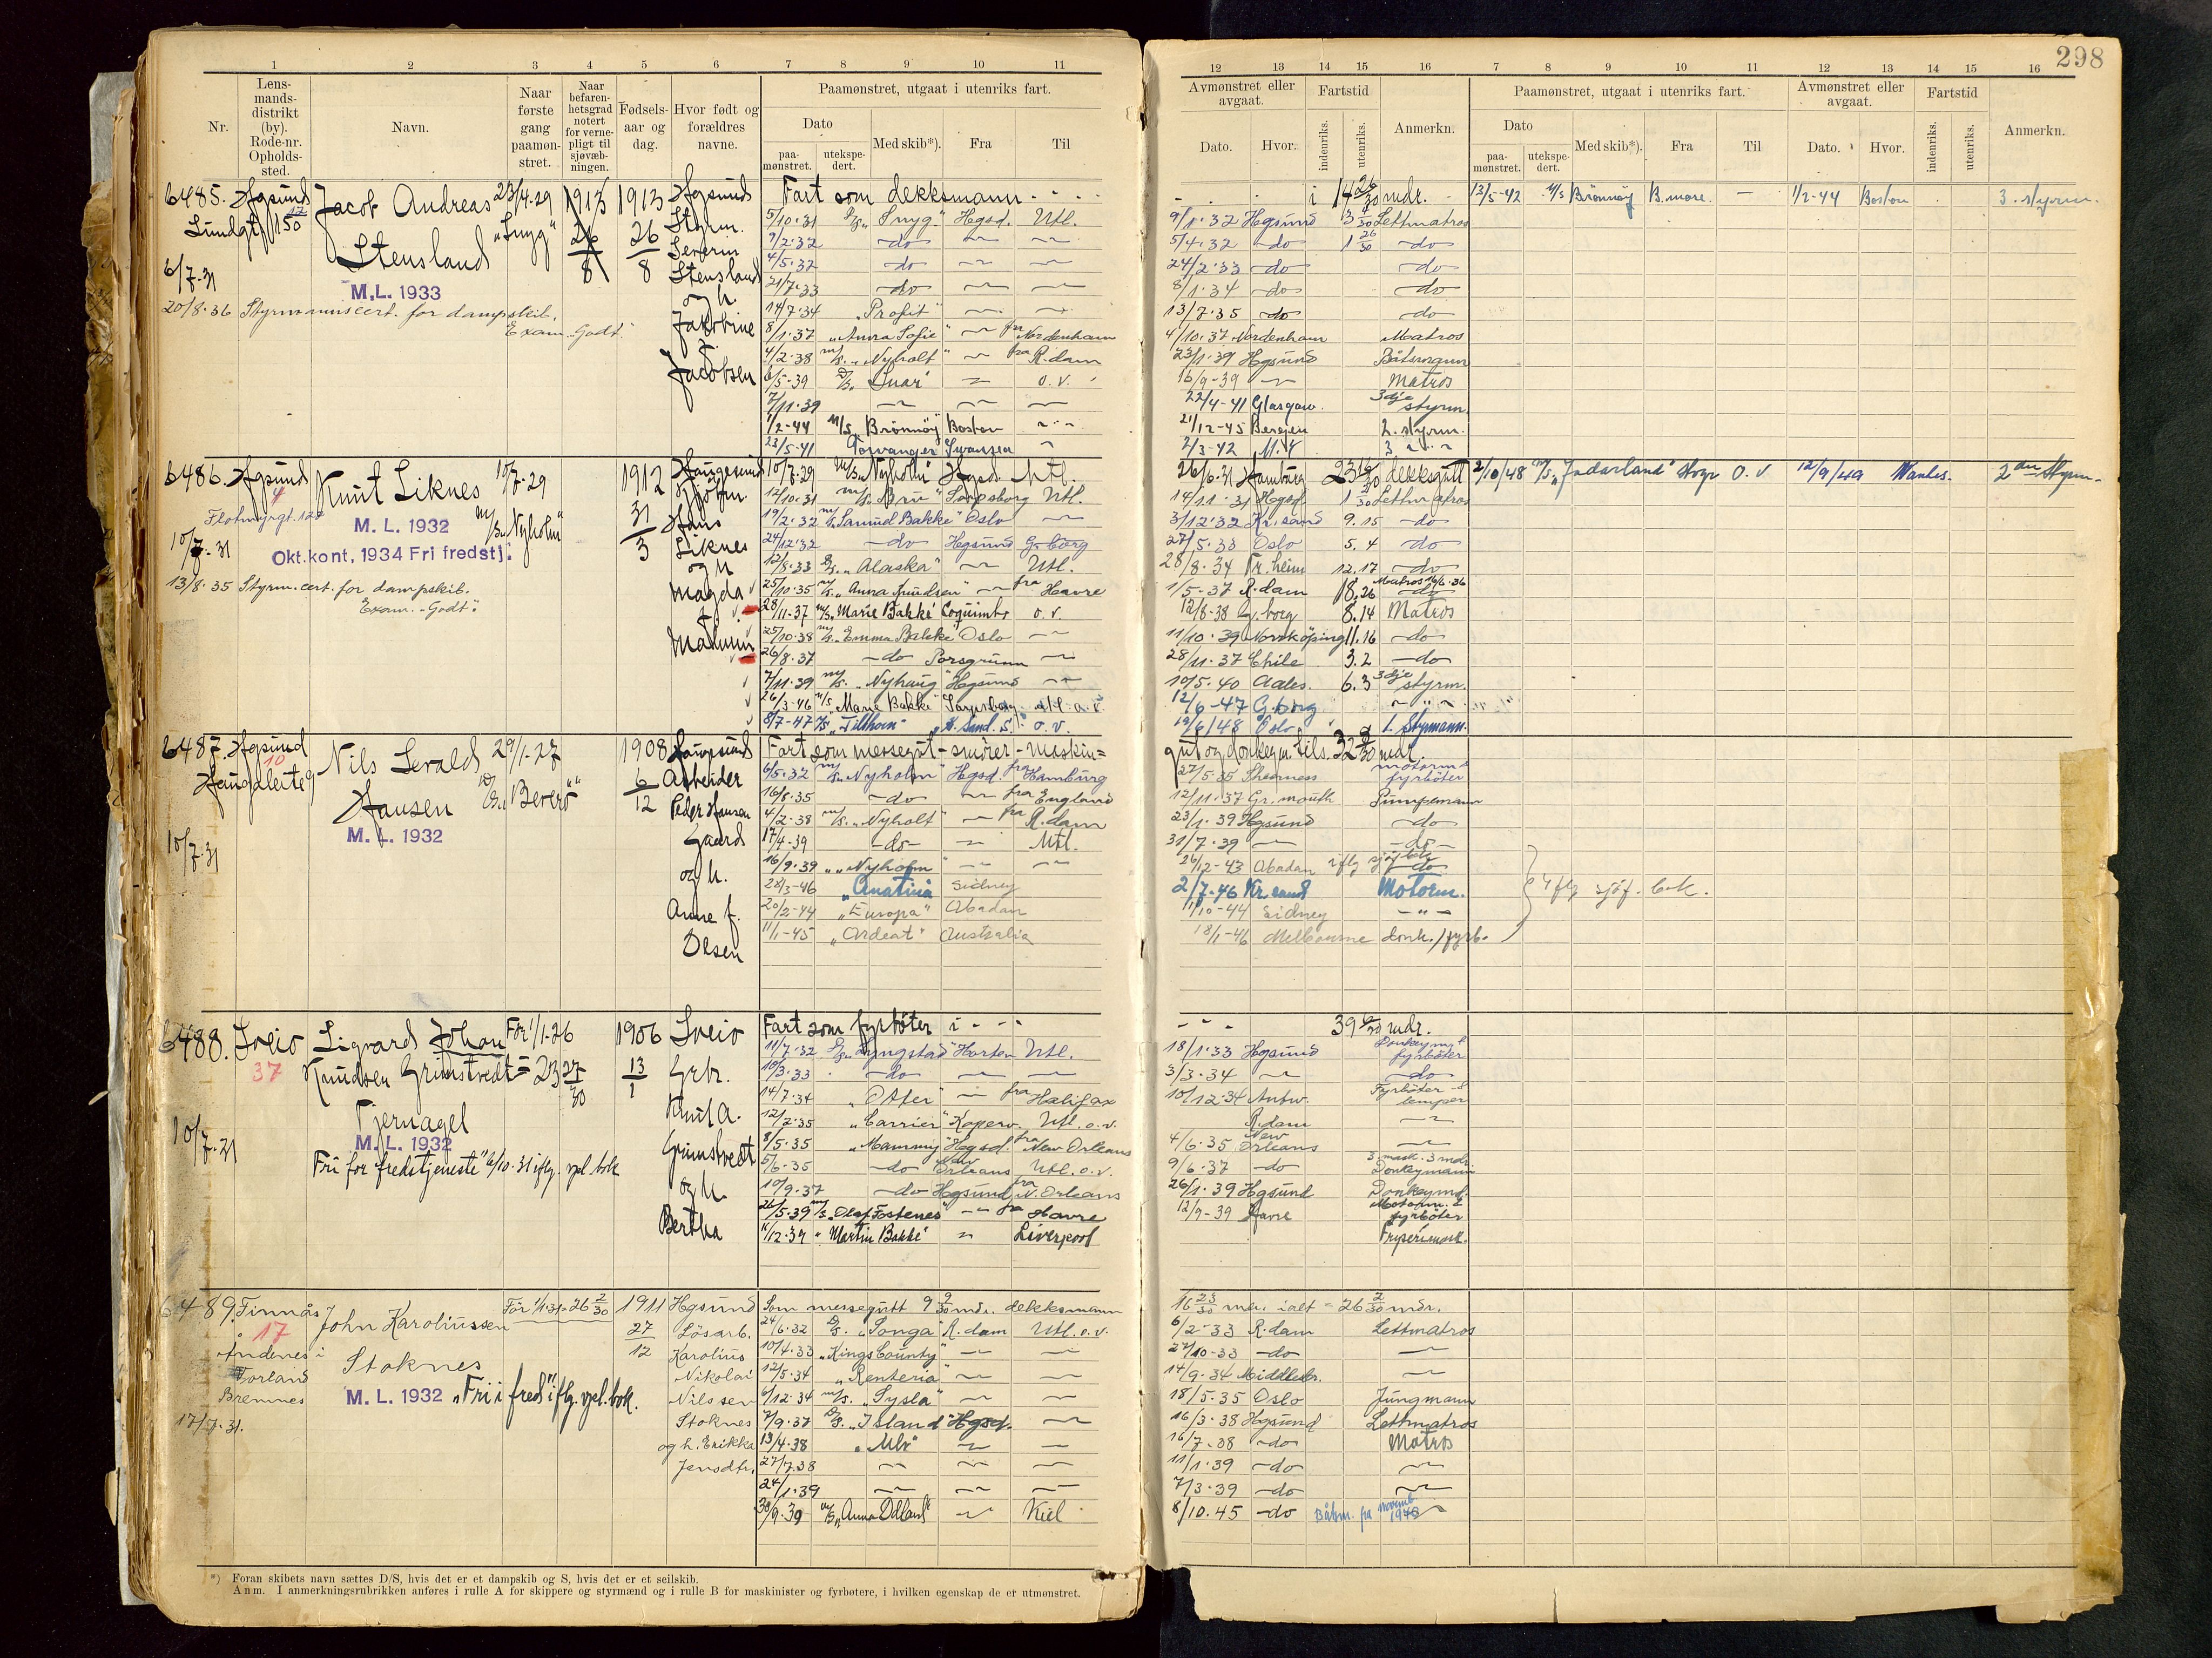 298
1 2 3 4 5 6 7 8 9 10 11
Nr.
Lens-
mands-
distrikt
(by).
Rode-nr.
Opholds-
sted.
Navn.
Naar
første
gang
paamøn-
stret.
Naar
befaren-
hetsgrad
notert
for verne-
pligt til
sjøvæb-
ningen.
Fødsels-
aar og
dag.
Hvor født og
forældres
navne.
Paamønstret, utgaat i utenriks fart.
Dato
paa-
mønstret.
utekspe-
dert.
Med skib*).
Fra
Til
12 13 14 15 16 7 8 9 10 11 12 13 14 15 16
Avmønstret eller
avgaat.
Dato.
Hvor.
Fartstid
indenriks.
utenriks.
Anmerkn.
Paamønstret, utgaat i utenriks fart.
Dato
paa-
mønstret.
utekspe-
dert.
Med skib*).
Fra
Til
Avmønstret eller
avgaat.
Dato.
Hvor.
Fartstid
indenriks.
utenriks.
Anmerkn.
6485. Hgsund
Lundgt. 150
6/7-31
Jacob Andreas
Stensland
M.L. 1933
23/4.29
"Snyg"
1913
26
8
1913
26
8
Hgsund
Styrm.
Severin
Stensland
og h.
Jakobine
f.
Jacobsen
20/8.36 Styrmannscert. for dampskib.
Exam. Godt.
Fart som dekksmann - - -
i 14 26/30 mdr.
5/10.31 D/S "Snyg" Hgsd. Utl.
9/2.32 -do-
4/5.32 -do-
21/7.33 -do-
14/7.34 "Profit"
8/1.37 "Anna Sofie" fra Nordenham
4/2.38 m/s. "Nyholt" fra R.dam
6/5-39 D/S "Snar" o.v.
7/11.39
1/2-44 M/S "Brønnøy" Boston
23/5-41 Torvanger Swansea
9/1.32 Hgsund Lettmatros
5/4.32 -do- 1 26/30 -do-
24/2.33 -do- -do-
8/1.34 -do- -do-
13/7.35 -do- -do-
4/10.37 Nordenham Matros
23/1.39 Hgsund Båtsmann
16/9-39 Matros
22/4-41 Glasgow. 3dje styrm.
21/12-45 Bergen 2. styrm.
2/3-42 N.Y. 3
13/5-42 M/S Brønnøy B.more. — 1/2-44 Boston 3. styrm.
6486. Hgsund
4
Flotmyrgt. 122
10/7-31
Knut Liknes
M. L. 1932
Okt.kont, 1934 Fri fredstj.
10/7.29
m/s "Nyholm"
1912
31
3
Haugesund
Hans
Liknes
og h.
Magda
f.
13/8.35 Styrm.cert. for dampskib.
Exam. "Godt".
10/7.29 m/s "Nyholm" Hgsd. Utl.
12/10.31 m/s "Bru" Sarpsborg Utl.
19/2.32 m/s "Samuel Bakke" Oslo
24/12.32 -do- Hgsund G.borg
12/8.33 D/S. "Alaska" Utl.
25/10.35 m/s. "Anna Knudsen" fra Havre
28/11-37 m/s. Marie Bakke Coquimbo o.v.
25/10.38 m/s. "Emma Bakke" Oslo
26/8.37 -do Porsgrunn
7/11.39 m/s. "Nyhaug" Hgsund
26/3-46 m/s. "Marie Bakke" Sarpsborg
8/7-47 M/S "Tillthorn" o.v.
26/6.31 Hamburg dekksgutt
14/11.31 Hgsd. Lettmatros
3/12.32 Kr.sand 9.15 -do
27/5.33 Oslo 5.4 -do
28/8.34 Tr.heim 12.17 -do
Matros 16/6.36
1/5-37 R.dam 18.26 -do
12/8-38 G.borg 8.14 Matros
11/10.39 Norrköping 11.16 -do
28/11.37 Chile 3.2 -do
10/5.40 Aales. 6.3 3dje styrm.
12/6-47 G.borg
19/6/48 Oslo 1. Styrmann.
2/10/48 M/S "Jadarland" O.V 12/9/49 2den Styrm.
6487. Hgsund
10
10/7-31
Nils Levald
Hansen
M. L. 1932
29/1.27
"Beverø"
1908
6
12
Haugesund
Arbeider
Peder Hansen
Gaard
og h.
Anne f.
Olsen
Fart som messegut - smører - maskin=
gut og donkeym. tils. mdr.
6/5.32 m/s "Nyholm" Hgsd. fra Hamburg
16/8.35 -do fra England
4/2.38 m/s. "Nyholt" fra R.dam
17/4.39 -do- Utl.
16/9.39 "Nyholm"
28/3-46 "Anatina" Sidney
20/2-44 "Europa" Abadan
11/1-45 "Ardeat" Australia
27/5.35 Sheerness motorm. & fyrbøter
12/11.37 Gr.mouth Pumpemann
23/1.39 Hgsund -do
31/7.39 -do-
26/12-43 Abadan iflg sjøf.bok -do
2/7-46 Kr.sand Motorm.
11/10-44 Sidney
18/1-46 Melbourne donk./fyrb.
iflg sjøf. bok.
6488. Sveio
37
10/7.31
Sigvard Johan
Knudsen Grimstvedt
Tjernagel
M. L. 1932
Fri for fredstjeneste 6/10.31 iflg. vpl. bok
Før 1/1.26
= 23 27/30
1906
13
1
Sveio
Grbr.
Knut A.
Grimstvedt
og h.
Bertha
Fart som fyrbøter i - - -
39 mdr.
11/7.32 D/S. "Lyngstad" Horten Utl.
10/3.33 -do
14/7.34 "Otter" fra Halifax
12/2.35 "Carrier" Koperv. Utl. o.v.
8/5.35 "Mammy" Hgsd. fra New Orleans
5/6.35 -do New Orleans Utl. o.v.
10/9.37 -do Hgsund fra N. Orleans
26/5.39 m/s. "Olaf Fostenes" fra Havre
1/12.39 "Martin Bakke" Liverpool
18/1.33 Hgsund Donkeym. & fyrbøter
3/3.34 -do
10/12.34 Antw. Fyrbøter & lemper
R.dam
4/6.35 New Orleans
9/6.37 -do 3. mask. 3 mdr. Donkeymann
26/1.39 Hgsund Donkeymd.
12/9-39 Havre Motorm. & fyrbøter
Fryserimask.
6489. Finnås
17
Åndenes i
Forland
Bremnes
17/7.31.
John Karoliussen
Stoknes
M. L. 1932 "Fri i fred" iflg. vpl. bok.
Før 1/1.31 = 26 2/30
1911
27
12
Hgsund
Løsarb.
Karolius
Nikolai
Nilssen
Stoknes
og h. Erikka
Jensdtr.
Som messegutt 9 9/30 mdr. dekksmann
16 23/30 mdr. ialt = 26 2/30 mdr.
24/6.32 D/S. "Songa" R.dam Utl. o.v.
10/4.33 "Kings County"
12/5.34 "Renteria"
6/12.34 m/s. "Sysla"
7/9.37 D/S. "Island" Hgsd.
13/4.38 "Ulv"
27/7.38
24/1.39
30/9.39 m/s "Anna Odland" Kiel
6/2-33 R.dam Lettmatros
27/10-33 -do
14/9.34 Middlesbr.
18/5.35 Oslo Jungmann
16/3.38 Hgsund Lettmatros
16/7.38 -do Matros
11/1.39 -do
7/3.39 -do
8/10.45 -do Båtsm. fra novemb.
*) Foran skibets navn sættes D/S, hvis det er et dampskib og S, hvis det er et seilskib.
Anm. I anmerkningsrubrikken anføres i rulle A for skippere og styrmænd og i rulle B for maskinister og fyrbøtere, i hvilken egenskap de er utmønstret.